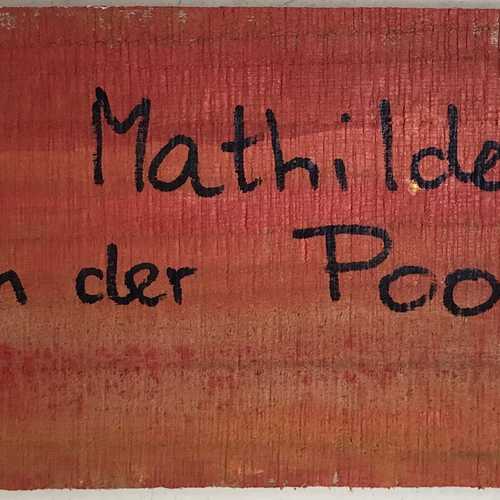 Mathilde
n der Poo